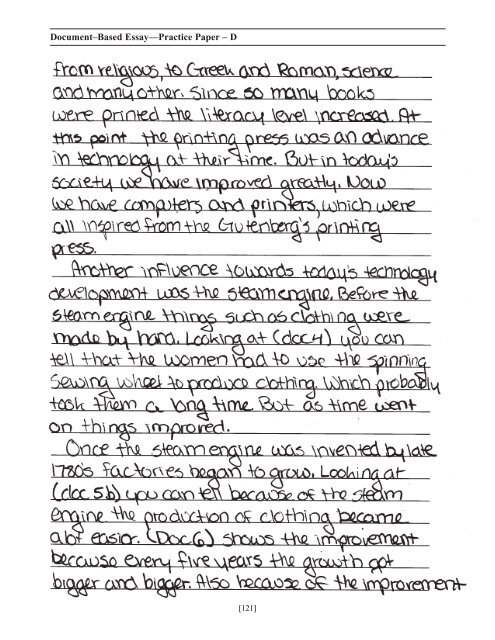 Document–Based Essay—Practice Paper – D
from religious, to Greek and Roman, science
and many other. Since so many books
were printed the literacy level increased. At
this point the printing press was an advance
in technology at their time. But in today's
society we have improved greatly. Now
we have computers and printers, which were
all inspired from the Gutenberg's printing
press.
Another influence towards today's technology
development was the steam engine. Before the
steam engine things such as clothing were
made by hand. Looking at (doc 4) you can
tell that the women had to use the spinning
sewing wheel to produce clothing. Which probably
took them a long time But as time went
on things improved.
Once the steam engine was invented by late
1780's factories began to grow. Looking at
(doc 5b) you can tell because of the steam
engine the production of clothing became
a lot easier. (Doc 6) shows the improvement
because every five years the growth got
bigger and bigger. Also because of the improvement
[121]